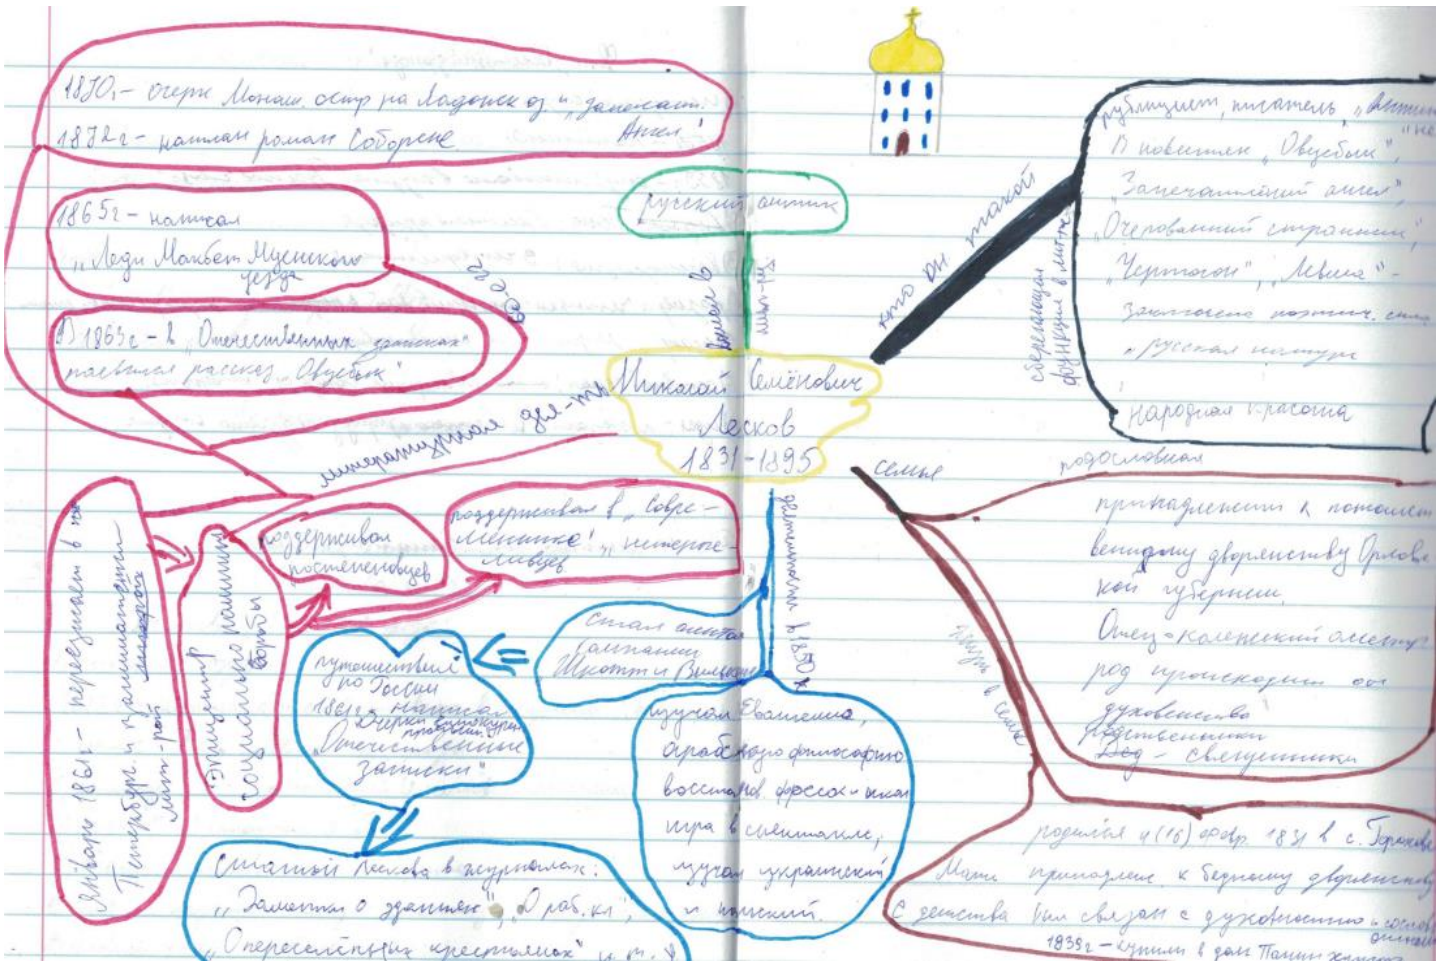 1870г – очерк Монаш. остр на Ладожск оз. и „Запечатл.
Ангел"
1872г – написан роман Соборяне
1865г – написал
„Леди Макбет Мценского
уезда
В 1863г – в „Отечественных записках"
появился рассказ „Овцебык"
русский
Николай Семёнович
Лесков
1831–1895
кто он такой
публицист, писатель,
В повестях „Овцебык",
"Запечатлённый ангел",
„Очарованный странник",
"Чертогон", „Левша" –
заключено
„русская натура
народная красота
литературная дея-ть
семья
родословная
принадлежит к потомст
венному дворянству Орловс
кой губернии.
Отец – коллежский
род происходит от
духовенства
родственники
Дед – священники
жизнь в семье
родился 4 (16) февр. 1831 в с. Горохове
Мать принадлеж. к бедному дворянству
С детства был связан с духовностью
1839г – купили в долг Панин хутор
Январь 1861г – переезжает в
Петербург. и
лит-рой
Эпицентр
социально полит.
борьбы
поддерживал
постепеновцев
поддерживал в „Совре–
меннике" „нетерпе–
ливцев
в 1850х
Стал
компании
Шкотт и Вилькенс
путешествия
по России
написал
1861г Очерки винокурен.
"Отечественные
записки"
изучал Евангелие,
философию
восстанов. фресок
игра в спектакле,
изучал украинский
и польский.
статьи Лескова в журналах:
„Заметки о зданиях", „О раб. кл",
„О переселённых крестьянах" и т. д